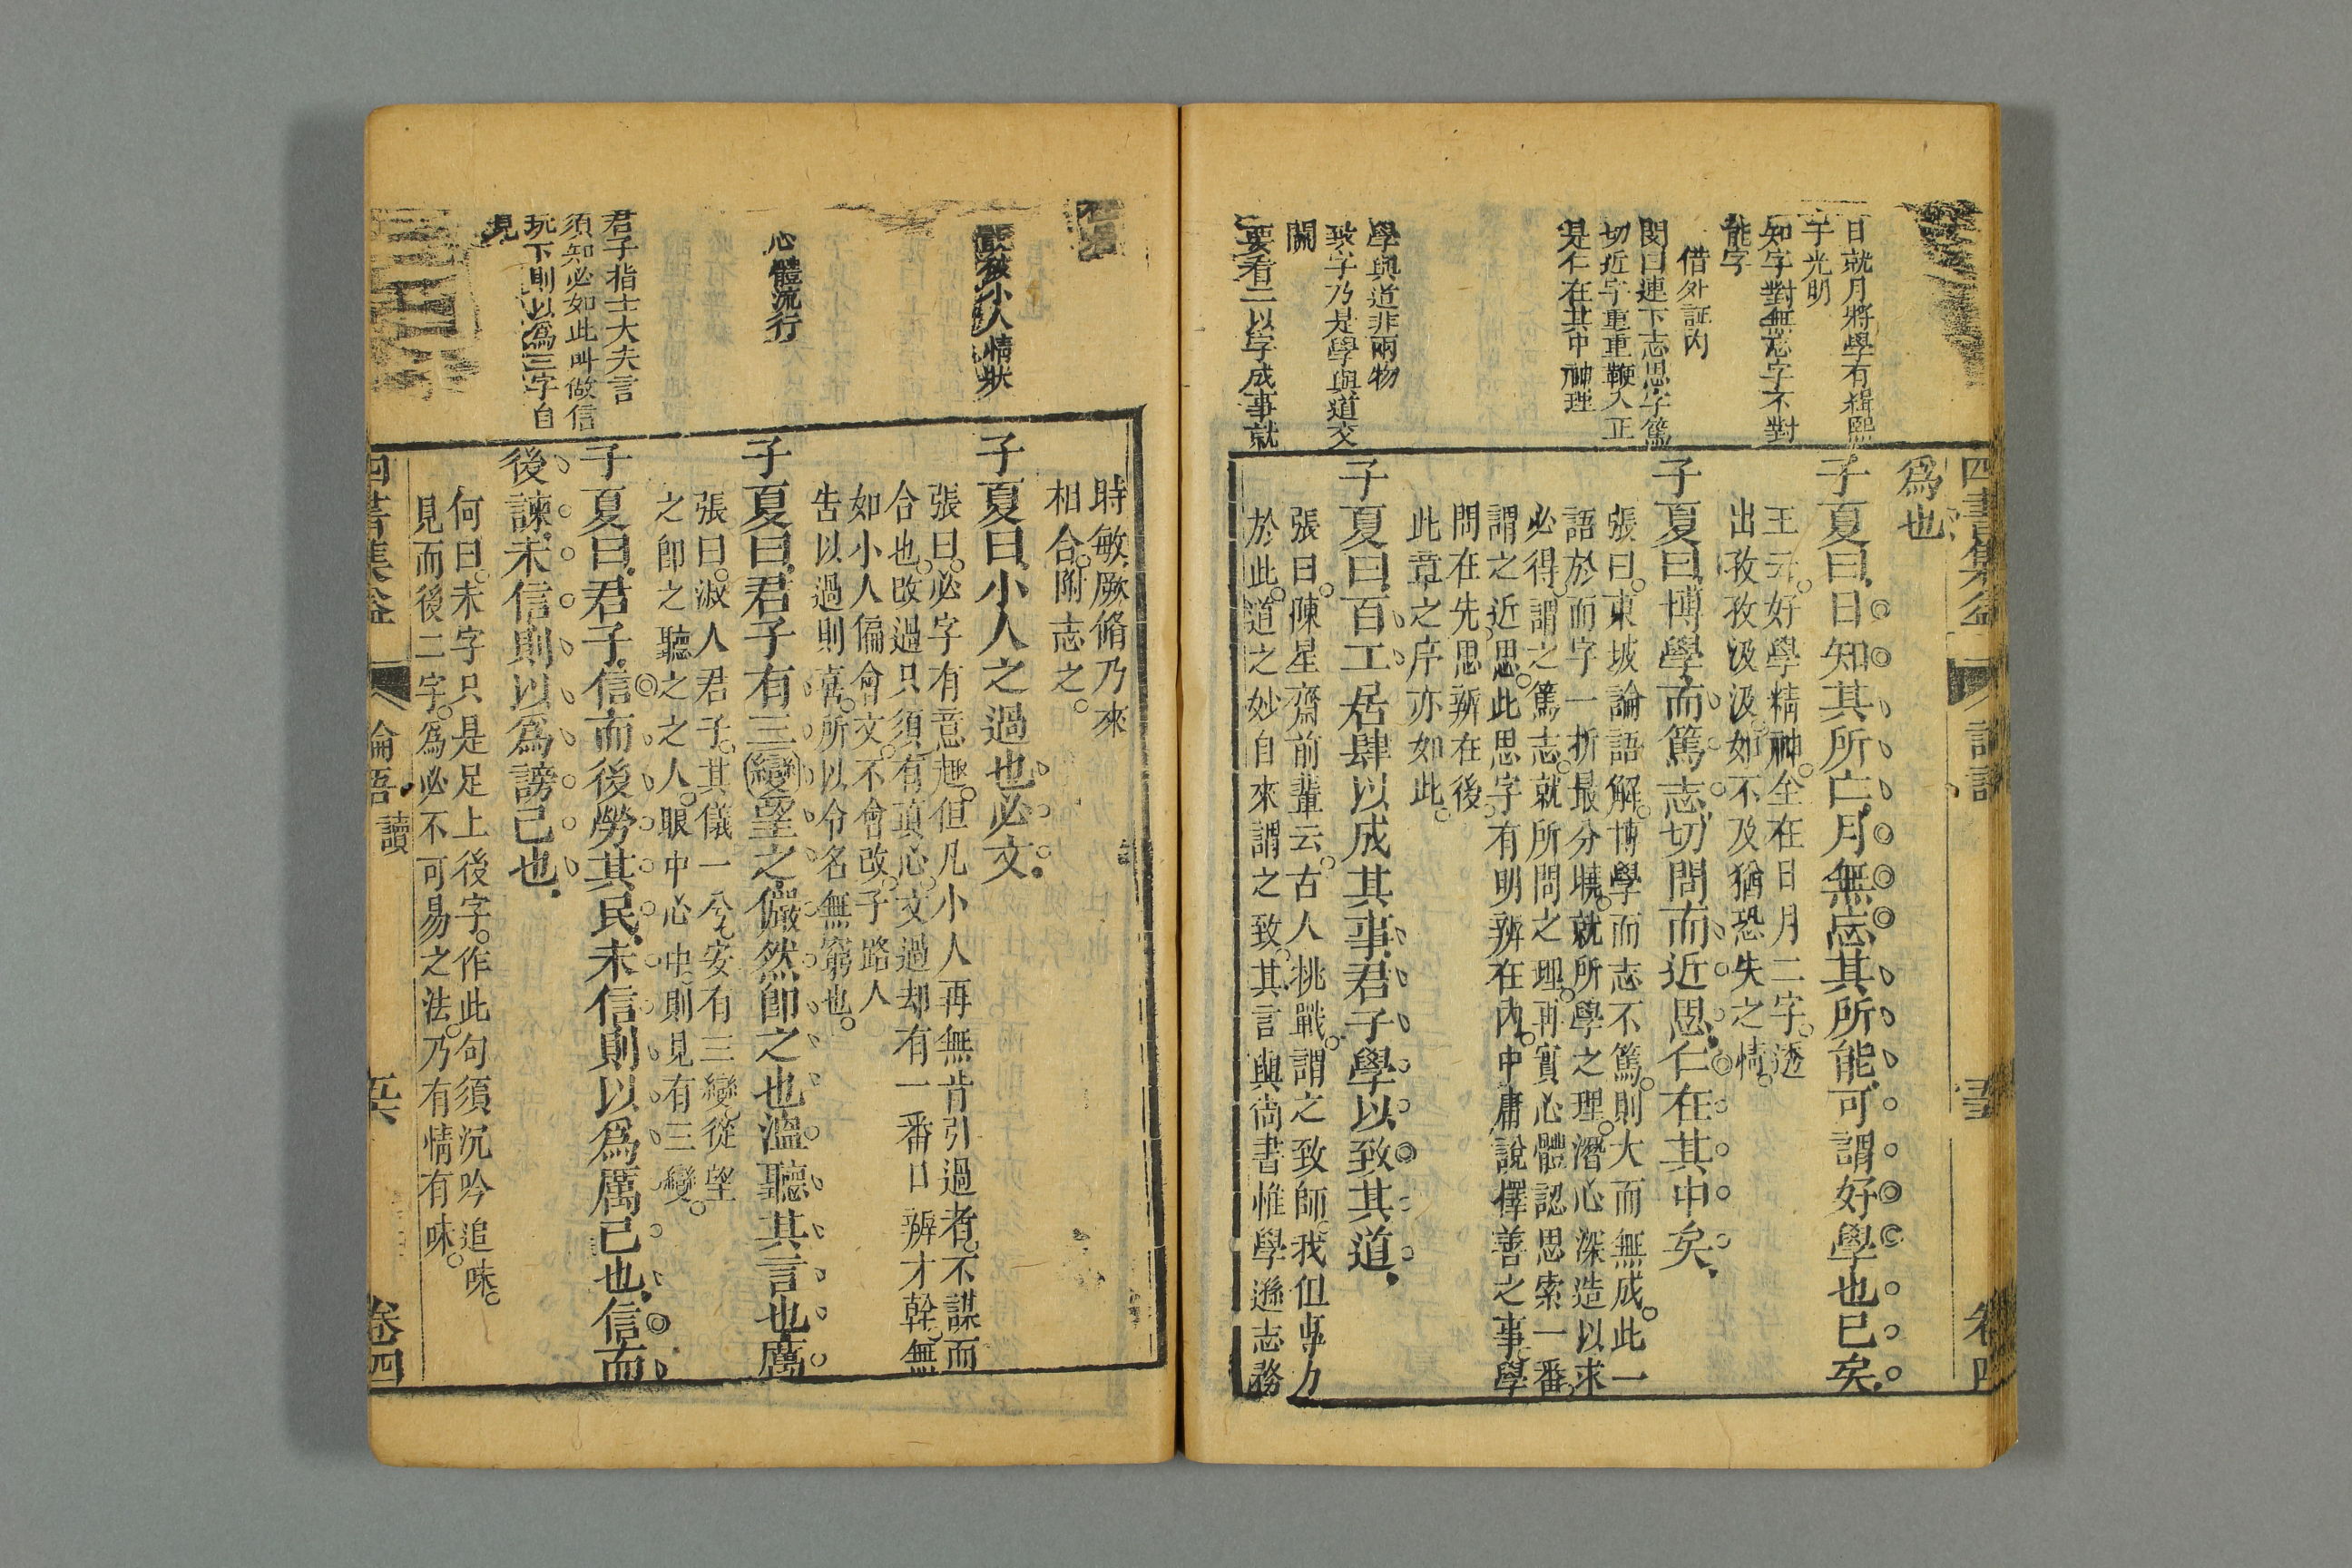 日就月將學有緝熙
于光明
知字對無忘字不對
能字
借外証内
閔曰連下志思字篤
切近字重重鞭入正
是仁在其中神理
學與道非兩物
致字乃是學與道交
關
要看二以字成事就
爲也
子夏曰日知其所亡月無忘其所能可謂好學也已矣
王云好學精神全在日月二字透
出孜孜汲汲如不及猶恐失之情
子夏曰博學而篤志切問而近思仁在其中矣
張曰東坡論語解博學而志不篤則大而無成此一
語於而字一折最分曉就所學之理潛心深造以求
必得謂之篤志就所問之理再實心體認思索一番
謂之近思此思字有明辨在內中庸說擇善之事學
問在先思辨在後
此章之序亦如此
子夏曰百工居肆以成其事君子學以致其道
張曰陳星齋前輩云古人挑戰謂之致師我但專力
於此道之妙自來謂之致其言與尚書惟學遜志務
小人情狀
心體流行
君子指士大夫言
須知必如此叫做信
玩下則以爲三字自
見
時敏厥脩乃來
相合附志之
子夏曰小人之過也必文
張曰必字有意趣但凡小人再無肯引過者不謀而
合也改過只須有頂心文過却有一番口辨才幹無
如小人偏會文不會改子路人
告以過則喜所以令名無窮也
子夏曰君子有三變望之儼然即之也溫聽其言也厲
張曰淑人君子其儀一兮安有三變從望
之即之聽之之人眼中心中則見有三變
子夏曰君子信而後勞其民未信則以爲厲己也信而
後諫未信則以爲謗己也
何曰未字只是足上後字作此句須沉吟追味
見而後二字爲必不可易之法乃有情有味
論吾 讀
卷四